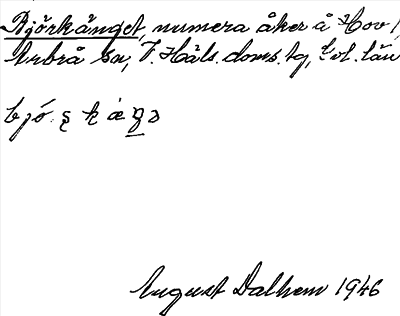 Björkänget, numera åker å Hov 1,
Arbrå sn, V. Häls. doms. tg, Gvl. län
August Dalhem 1946